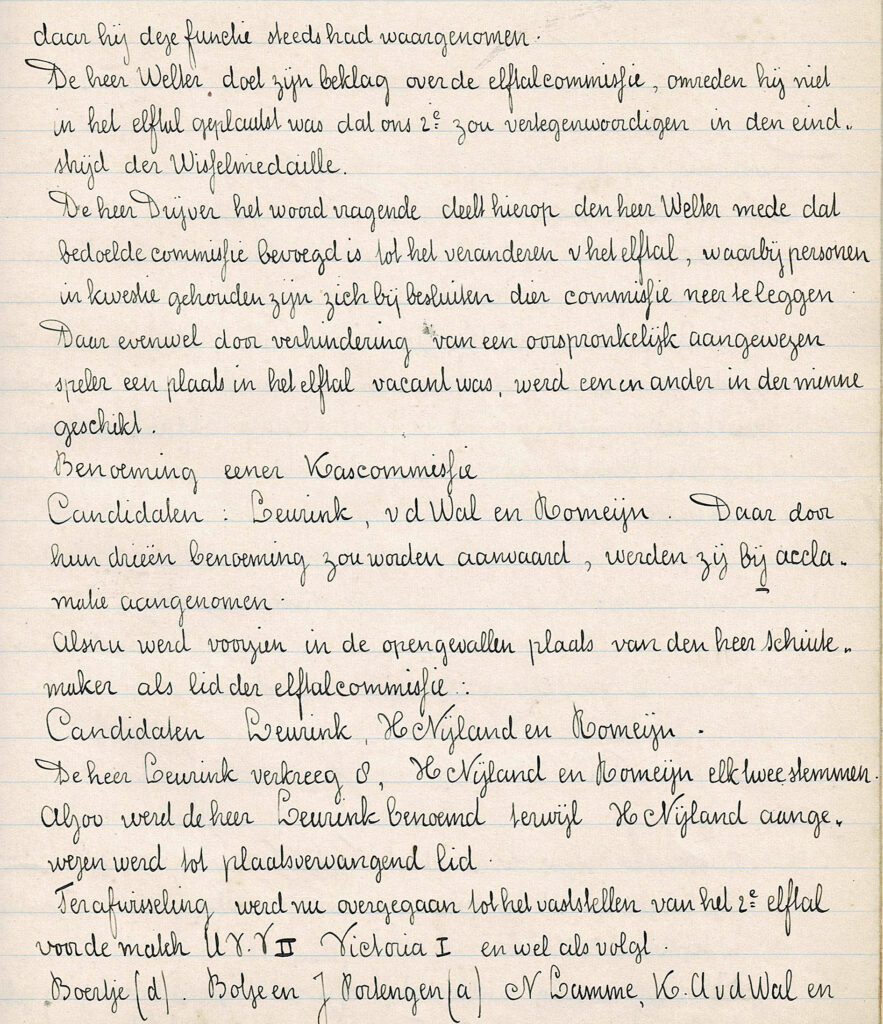 daar hij deze functie steeds had waargenomen.
De heer Welter doet zijn beklag over de elftalcommissie, omreden hij niet
in het elftal geplaatst was dat ons 2e zou vertegenwoordigen in den eind„
strijd der Wisselmedaille.
De heer Drijver het woord vragende deelt hierop den heer Welter mede dat
bedoelde commissie bevoegd is tot het veranderen v het elftal, waarbij personen
in kwestie gehouden zijn zich bij besluiten dier commissie neer te leggen
Daar evenwel door verhindering van een oorspronkelijk aangewezen
speler een plaats in het elftal vacant was, werd een en ander in der minne
geschikt.
Benoeming eener Kascommissie
Candidaten : Leurink, v d Wal en Romeijn. Daar door
hun drieën benoeming zou worden aanvaard, werden zij bij accla„
matie aangenomen.
Alsnu werd voorzien in de opengevallen plaats van den heer Schuite„
maker als lid der elftalcommissie :
Candidaten Leurink, H Nijland en Romeijn.
De heer Leurink verkreeg 8, H Nijland en Romeijn elk twee stemmen.
Alzoo werd de heer Leurink benoemd terwijl H Nijland aange„
wezen werd tot plaatsvervangend lid.
Ter afwisseling werd nu overgegaan tot het vaststellen van het 2e elftal
voor de match U.V.V II Victoria I en wel als volgt.
Boertje (d). Botje en J Portengen (a) N Lamme, K. A v d Wal en